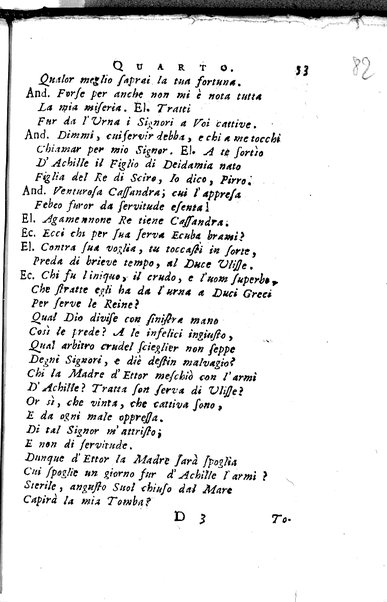 QUARTO. 53
82
Qualor meglio ſaprai la tua fortuna.
And. Forſe per anche non mi è nota tutta
La mia miſeria. El. Tratti
Fur da l'Urna i Signori a Voi cattive.
And. Dimmi, cui ſervir debba, e chi a me tocchi
Chiamar per mio Signor. El. A te ſortìo
D'Achille il Figlio di Deidamia nato
Figlia del Re di Sciro, Io dico, Pirro.
And. Venturoſa Caſſandra; cui l'appreſa
Febeo furor da ſervitude eſenta!
El. Agamennone Re tiene Caſſandra.
Ec. Ecci chi per ſua ſerva Ecuba brami?
El. Contra ſua voglia, tu toccaſti in ſorte,
Preda di brieve tempo, al Duce Uliſſe.
Ec. Chi fu l'iniquo, il crudo, e l'uom ſuperbo,
Che ſtratte egli ha da l'urna a Duci Greci
Per ſerve le Reine?
Qual Dio diviſe con ſiniſtra mano
Così le prede? A le infelici ingiuſto,
Qual arbitro crudel ſcieglier non ſeppe
Degni Signori, e diè deſtin malvagio?
Chi la Madre d'Ettor meſchiò con l'armi
D'Achille? Tratta ſon ſerva di Uliſſe?
Or sì, che vinta, che cattiva ſono,
E da ogni male oppreſſa.
Di tal Signor m'attriſto;
E non di ſervitude.
Dunque d'Ettor la Madre ſarà ſpoglia
Cui ſpoglie un giorno fur d'Achille l'armi?
Sterile, anguſto Suol chiuſo dal Mare
Capirà la mia Tomba?
D 3 To-